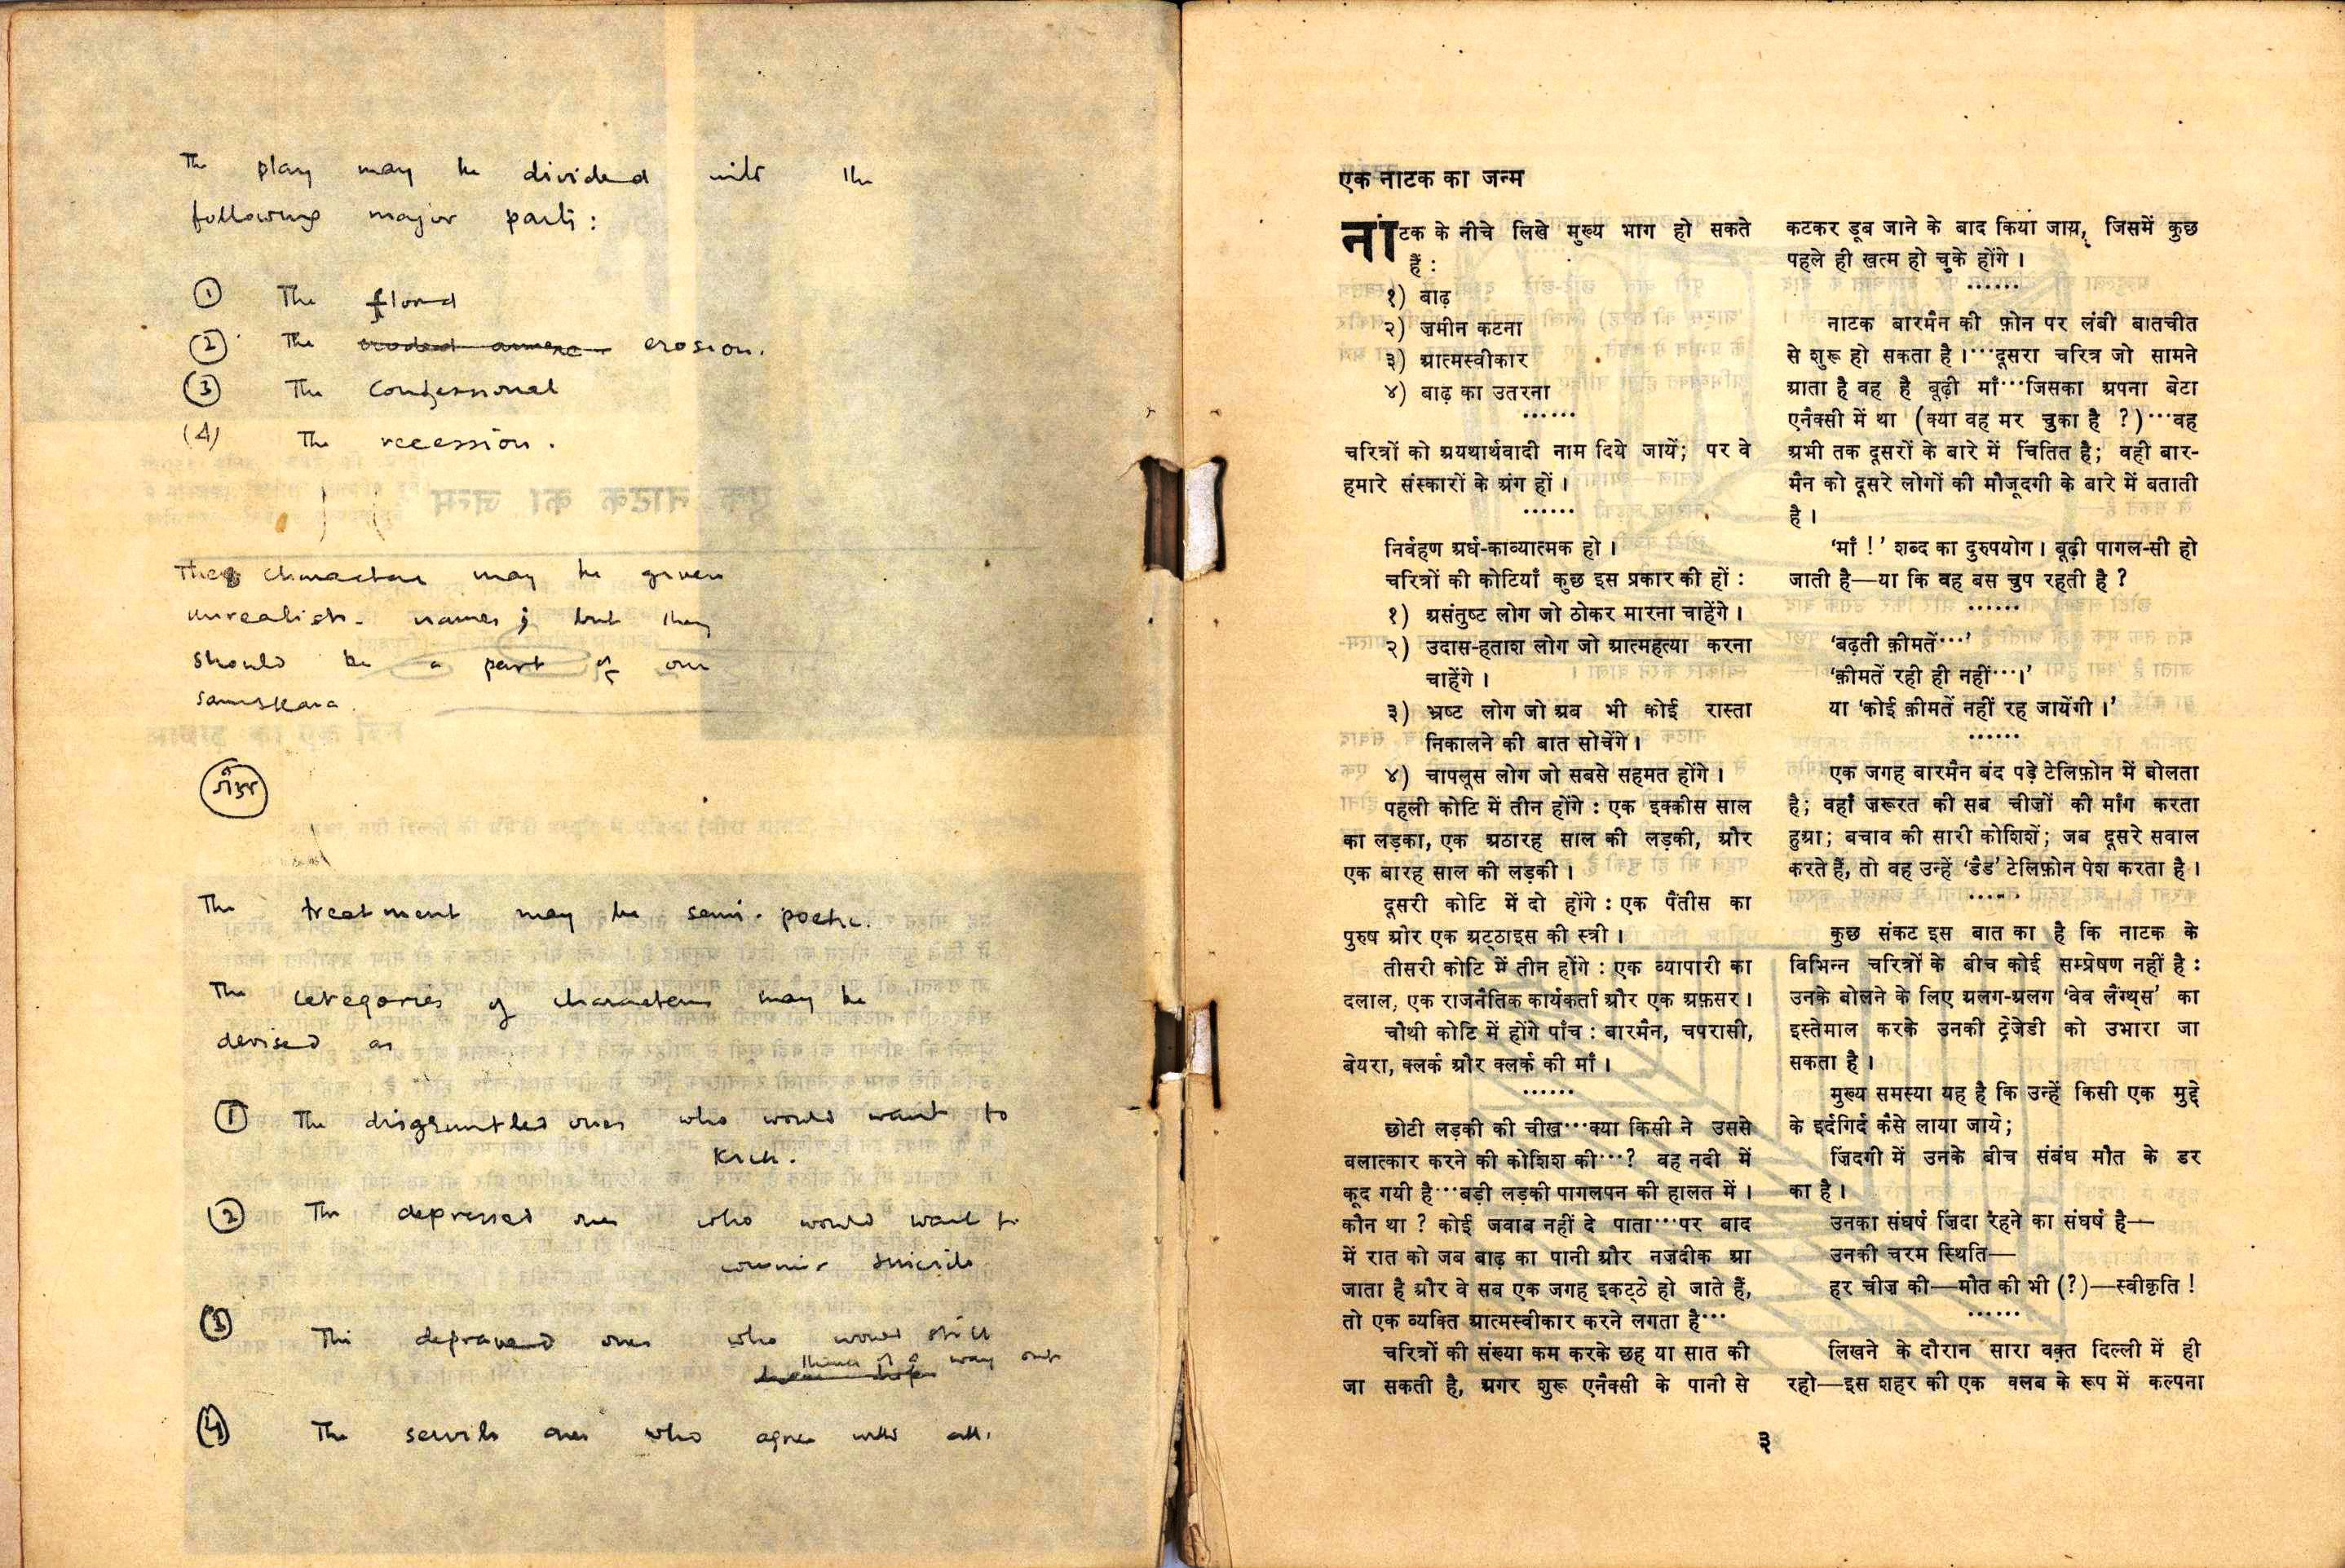 The play may be divided into the
following major parts:
① The flood
② The eroded annexe erosion.
③ The Confessional
(4) The recession.
The characters may be given
unrealistic names; but they
should be a part of our
Samskara.
The treatment may be semi-poetic.
The categories of characters may be
devised as
① The disgruntled ones who would want to
kick.
② The depressed ones who would want to
commit suicide
③ The depraved ones who would still
think of a way out
④ The servile ones who agree with all.
एक नाटक का जन्म
नाटक के नीचे लिखे मुख्य भाग हो सकते
हैं :
१) बाढ़
२) ज़मीन कटना
३) आत्मस्वीकार
४) बाढ़ का उतरना
······
चरित्रों को अयथार्थवादी नाम दिये जायें; पर वे
हमारे संस्कारों के अंग हों।
······
निर्वहण अर्ध-काव्यात्मक हो।
चरित्रों की कोटियाँ कुछ इस प्रकार की हों :
१) असंतुष्ट लोग जो ठोकर मारना चाहेंगे।
२) उदास-हताश लोग जो आत्महत्या करना
चाहेंगे।
३) भ्रष्ट लोग जो अब भी कोई रास्ता
निकालने की बात सोचेंगे।
४) चापलूस लोग जो सबसे सहमत होंगे।
पहली कोटि में तीन होंगे : एक इक्कीस साल
का लड़का, एक अठारह साल की लड़की, और
एक बारह साल की लड़की।
दूसरी कोटि में दो होंगे : एक पैंतीस का
पुरुष और एक अट्ठाइस की स्त्री।
तीसरी कोटि में तीन होंगे : एक व्यापारी का
दलाल, एक राजनैतिक कार्यकर्ता और एक अफ़सर।
चौथी कोटि में होंगे पाँच : बारमैन, चपरासी,
बेयरा, क्लर्क और क्लर्क की माँ।
······
छोटी लड़की की चीख···क्या किसी ने उससे
बलात्कार करने की कोशिश की···? वह नदी में
कूद गयी है···बड़ी लड़की पागलपन की हालत में।
कौन था ? कोई जवाब नहीं दे पाता···पर बाद
में रात को जब बाढ़ का पानी और नज़दीक आ
जाता है और वे सब एक जगह इकट्ठे हो जाते हैं,
तो एक व्यक्ति आत्मस्वीकार करने लगता है···
चरित्रों की संख्या कम करके छह या सात की
जा सकती है, अगर शुरू एनैक्सी के पानी से
कटकर डूब जाने के बाद किया जाय, जिसमें कुछ
पहले ही खत्म हो चुके होंगे।
······
नाटक बारमैन की फ़ोन पर लंबी बातचीत
से शुरू हो सकता है।···दूसरा चरित्र जो सामने
आता है वह है बूढ़ी माँ···जिसका अपना बेटा
एनैक्सी में था (क्या वह मर चुका है ?)···वह
अभी तक दूसरों के बारे में चिंतित है; वही बार-
मैन को दूसरे लोगों की मौजूदगी के बारे में बताती
है।
'माँ !' शब्द का दुरुपयोग। बूढ़ी पागल-सी हो
जाती है—या कि वह बस चुप रहती है ?
······
'बढ़ती क़ीमतें···'
'क़ीमतें रही ही नहीं···।'
या 'कोई क़ीमतें नहीं रह जायेंगी।'
······
एक जगह बारमैन बंद पड़े टेलिफ़ोन में बोलता
है; वहाँ ज़रूरत की सब चीज़ों की माँग करता
हुआ; बचाव की सारी कोशिशें; जब दूसरे सवाल
करते हैं, तो वह उन्हें 'डैड' टेलिफ़ोन पेश करता है।
······
कुछ संकट इस बात का है कि नाटक के
विभिन्न चरित्रों के बीच कोई सम्प्रेषण नहीं है :
उनके बोलने के लिए अलग-अलग 'वेव लैंग्थ्स' का
इस्तेमाल करके उनकी ट्रेजेडी को उभारा जा
सकता है।
मुख्य समस्या यह है कि उन्हें किसी एक मुद्दे
के इर्दगिर्द कैसे लाया जाये;
ज़िंदगी में उनके बीच संबंध मौत के डर
का है।
उनका संघर्ष ज़िंदा रहने का संघर्ष है—
उनकी चरम स्थिति—
हर चीज़ की—मौत की भी (?)—स्वीकृति !
······
लिखने के दौरान सारा वक़्त दिल्ली में ही
रहो—इस शहर की एक क्लब के रूप में कल्पना
३